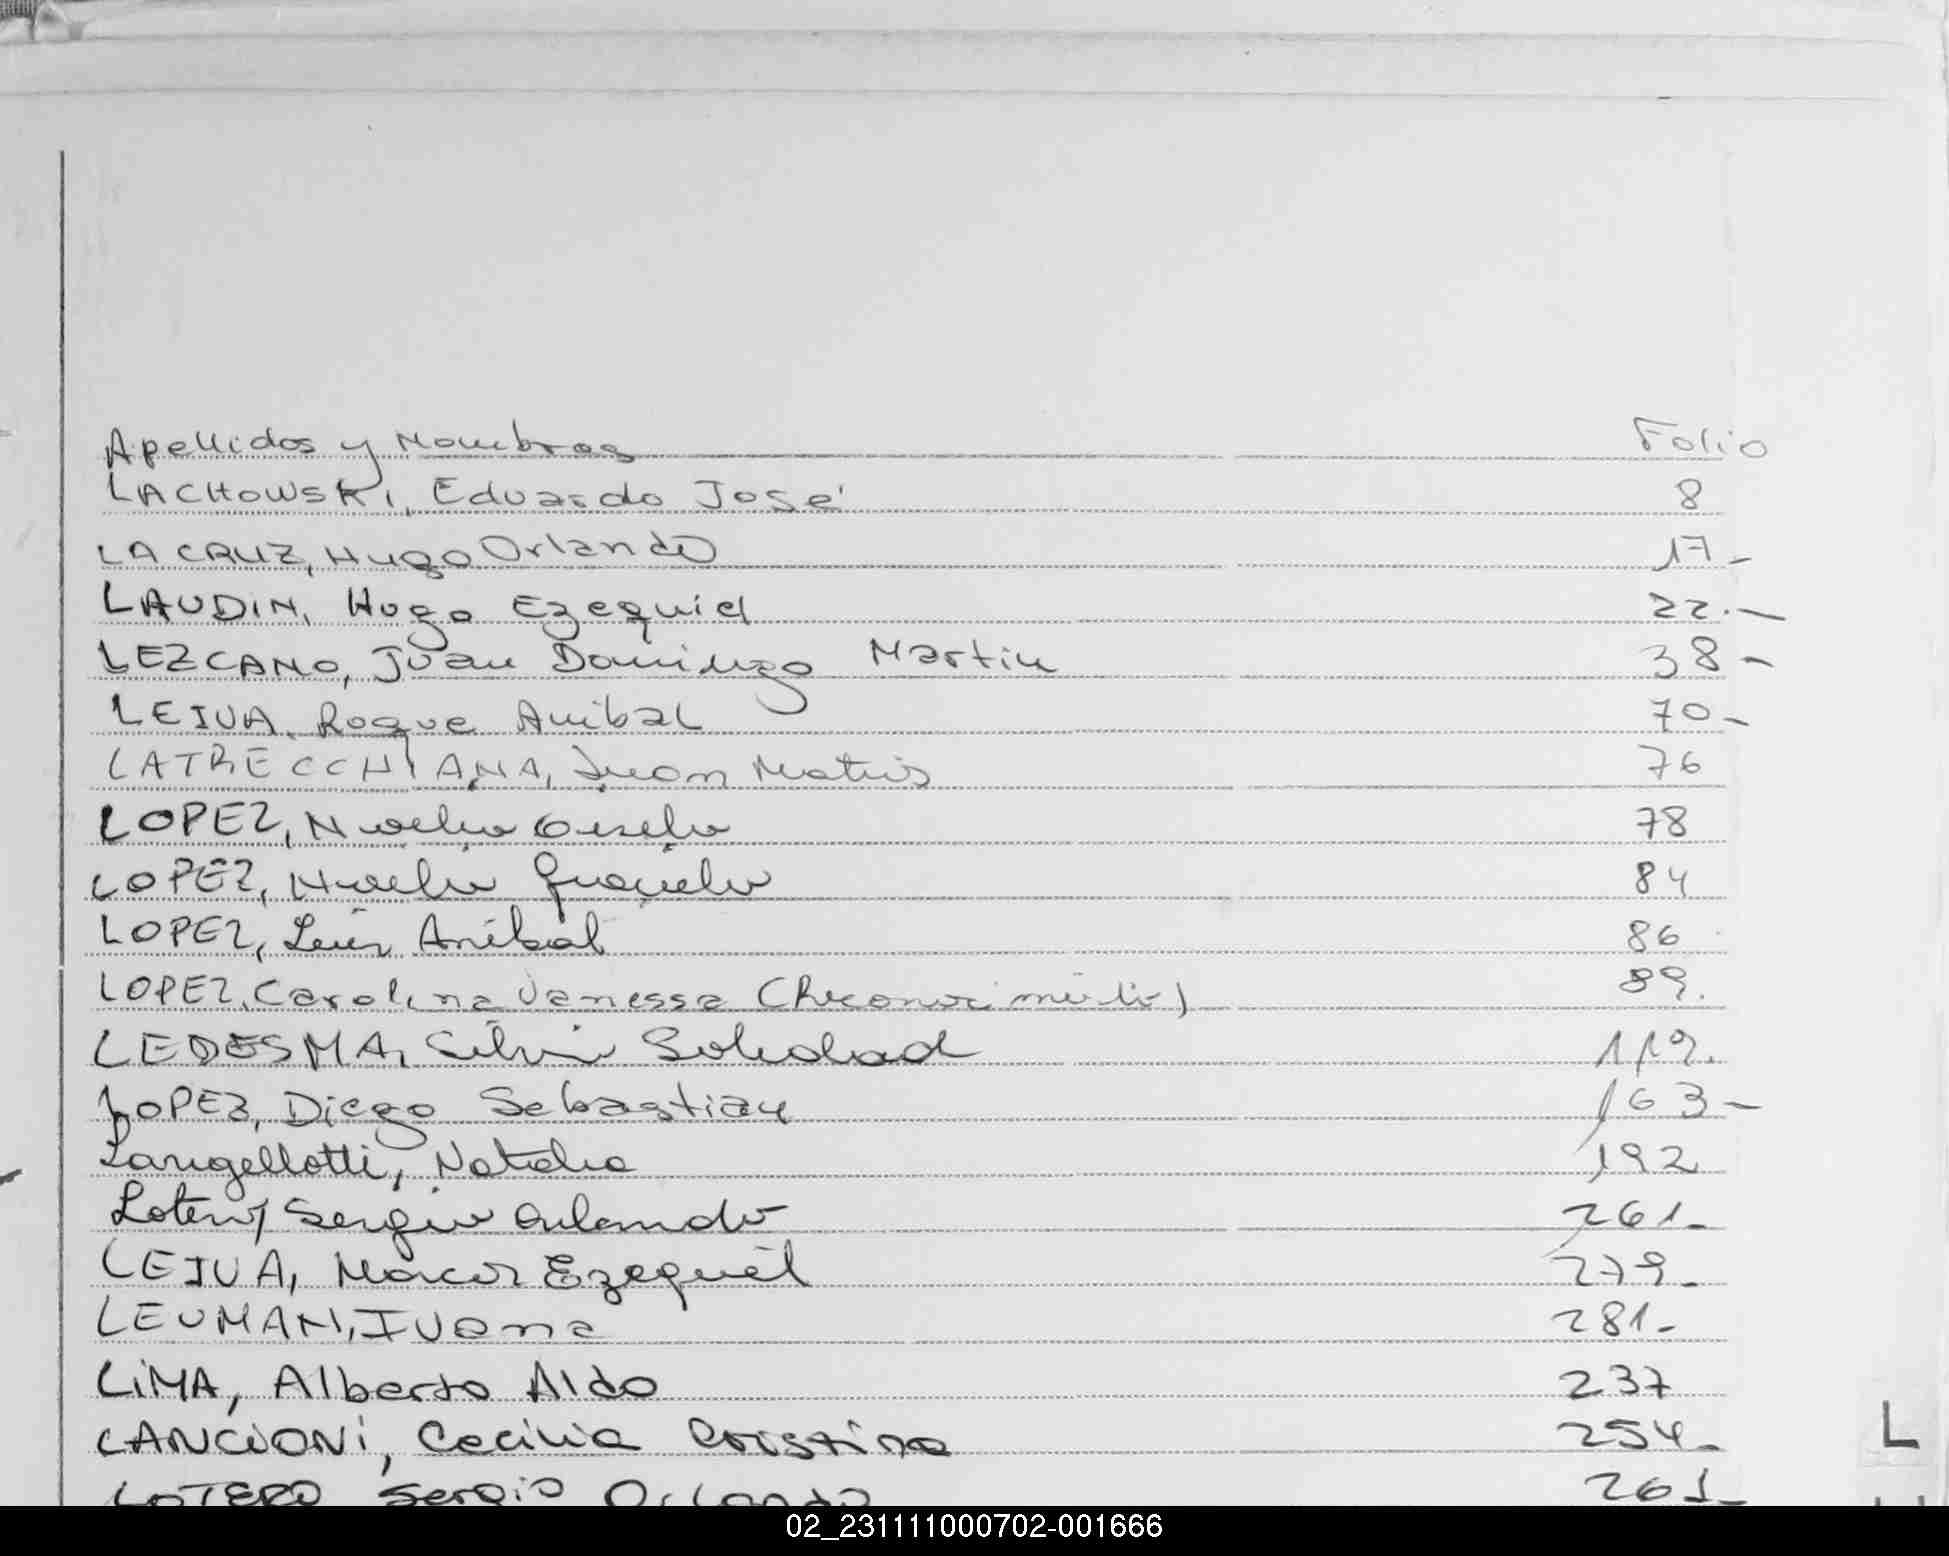 Apellidos y Nombres Folio
LACHOWSKI, Eduardo José 8
LA CRUZ, Hugo Orlando 17-
LAUDIN, Hugo Ezequiel 22.-
LEZCANO, Juan Domingo Martin 38-
LEIVA, Roque Anibal 70-
LATRECCHIANA, Juan Matias 76
LOPEZ, Noelia Gisela 78
LOPEZ, Noelia 84
LOPEZ, Luis Aníbal 86
LOPEZ, Carolina Vanessa (Reconocimiento) 89.
LEDESMA, Silvia Soledad 119.
LOPEZ, Diego Sebastian 163-
Langellotti, Natalia 192
Lotero, Sergio Orlando 261-
LEIVA, Marcos Ezequiel 279-
LEUMAN, Ivana 281-
LiMA, Alberto Aldo 237
LANCIONi, Cecilia Cristina 254-
LOTERO, Sergio Orlando 261-
L
02_231111000702-001666